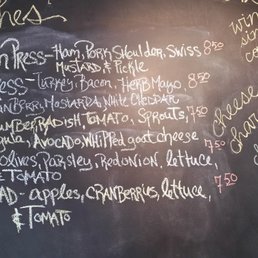 hes
n PRESS - HAM, PORK SHOULDER, SWISS 8.50
MUSTARD & PICKLE
RESS - TURKEY, BACON, HERB MAYO, 8.50
ANBERRY MUSTARD & WHITE CHEDDAR
UMBER, RADISH, TOMATO, SPROUTS, 7.50
gula, AVOCADO, WHIPPED goat cheese
OLIVES, PARSLEY, REDONION, lettuce, 7.50
& TOMATO
AD - apples, CRANBERRIES, lettuce, 7.50
& TOMATO
win
sin
co
cheese
char
ch